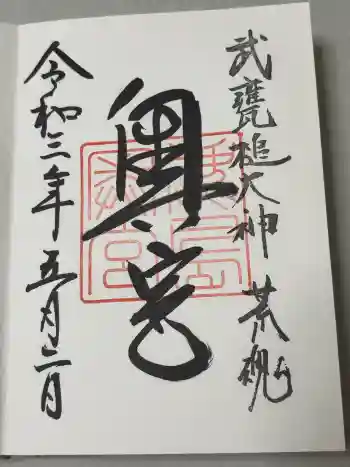 武甕槌大神 荒魂
奥宮
令和三年五月二日